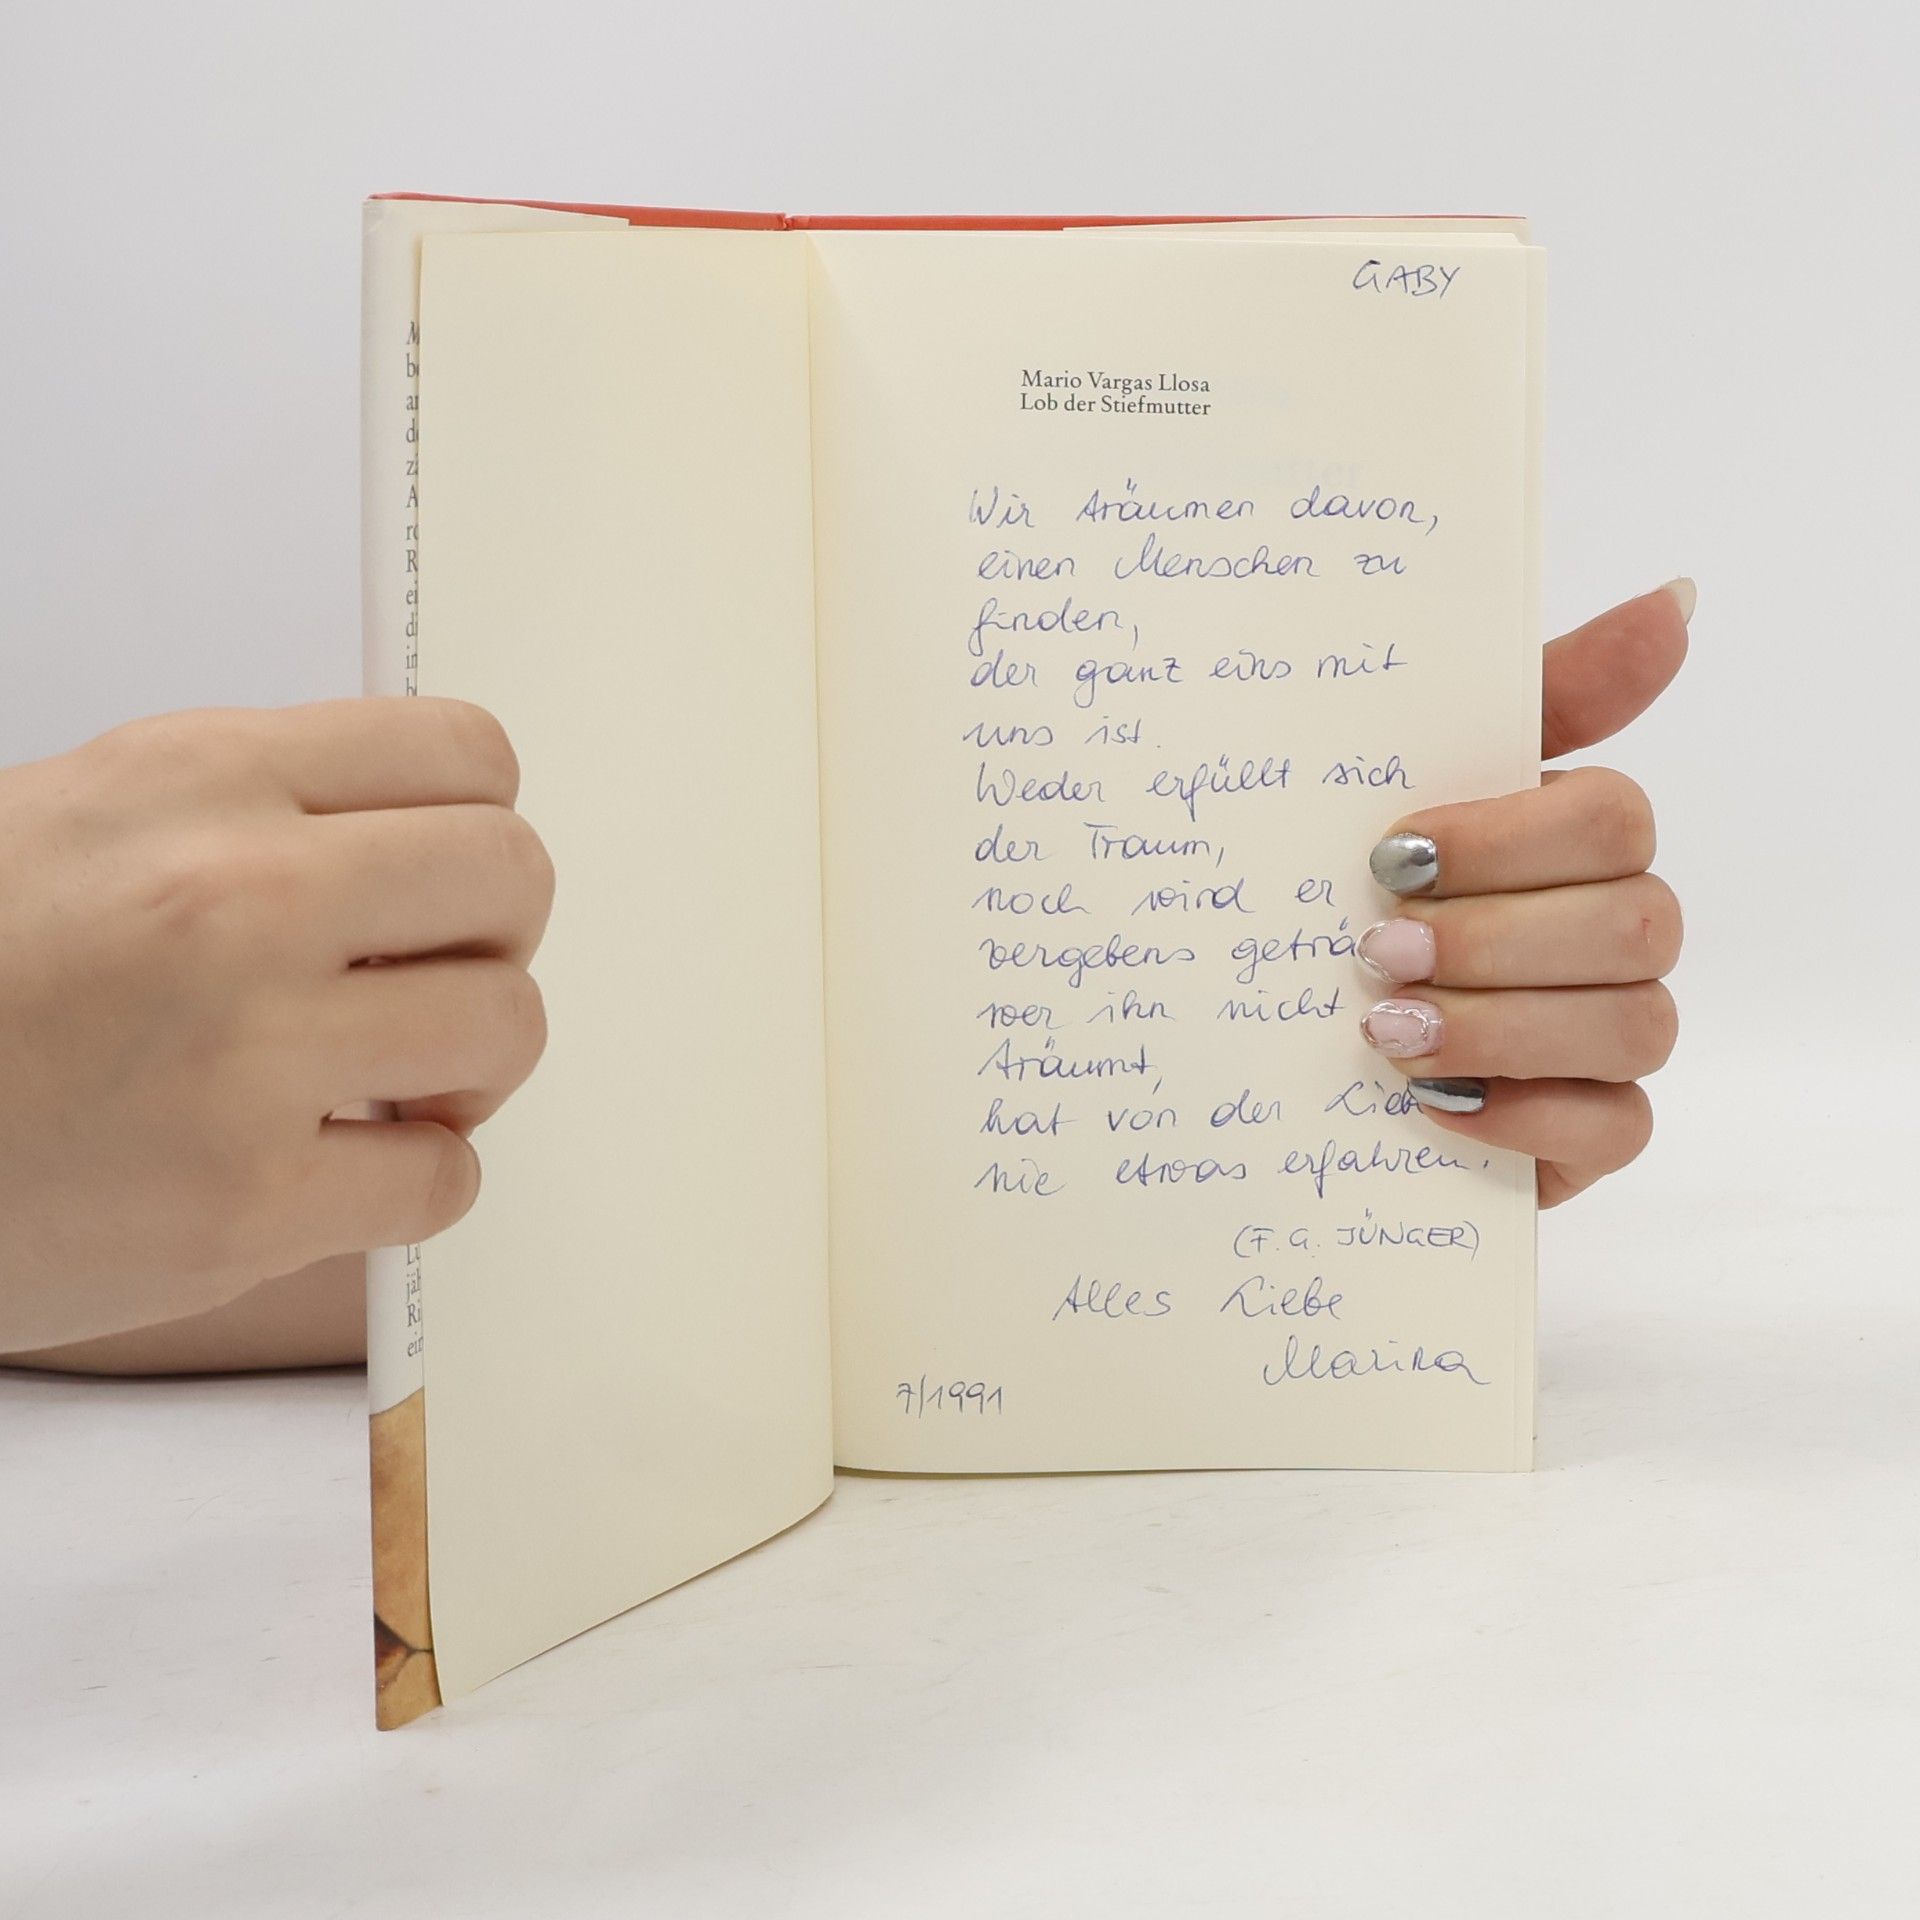 GABY
Mario Vargas Llosa
Lob der Stiefmutter
Wir träumen davon,
einen Menschen zu
finden,
der ganz eins mit
uns ist.
Weder erfüllt sich
der Traum,
noch wird er
vergebens geträ
wer ihn nicht
träumt,
hat von der Liebe
nie etwas erfahren.
(F. G. JÜNGER)
Alles Liebe
Marina
7/1991